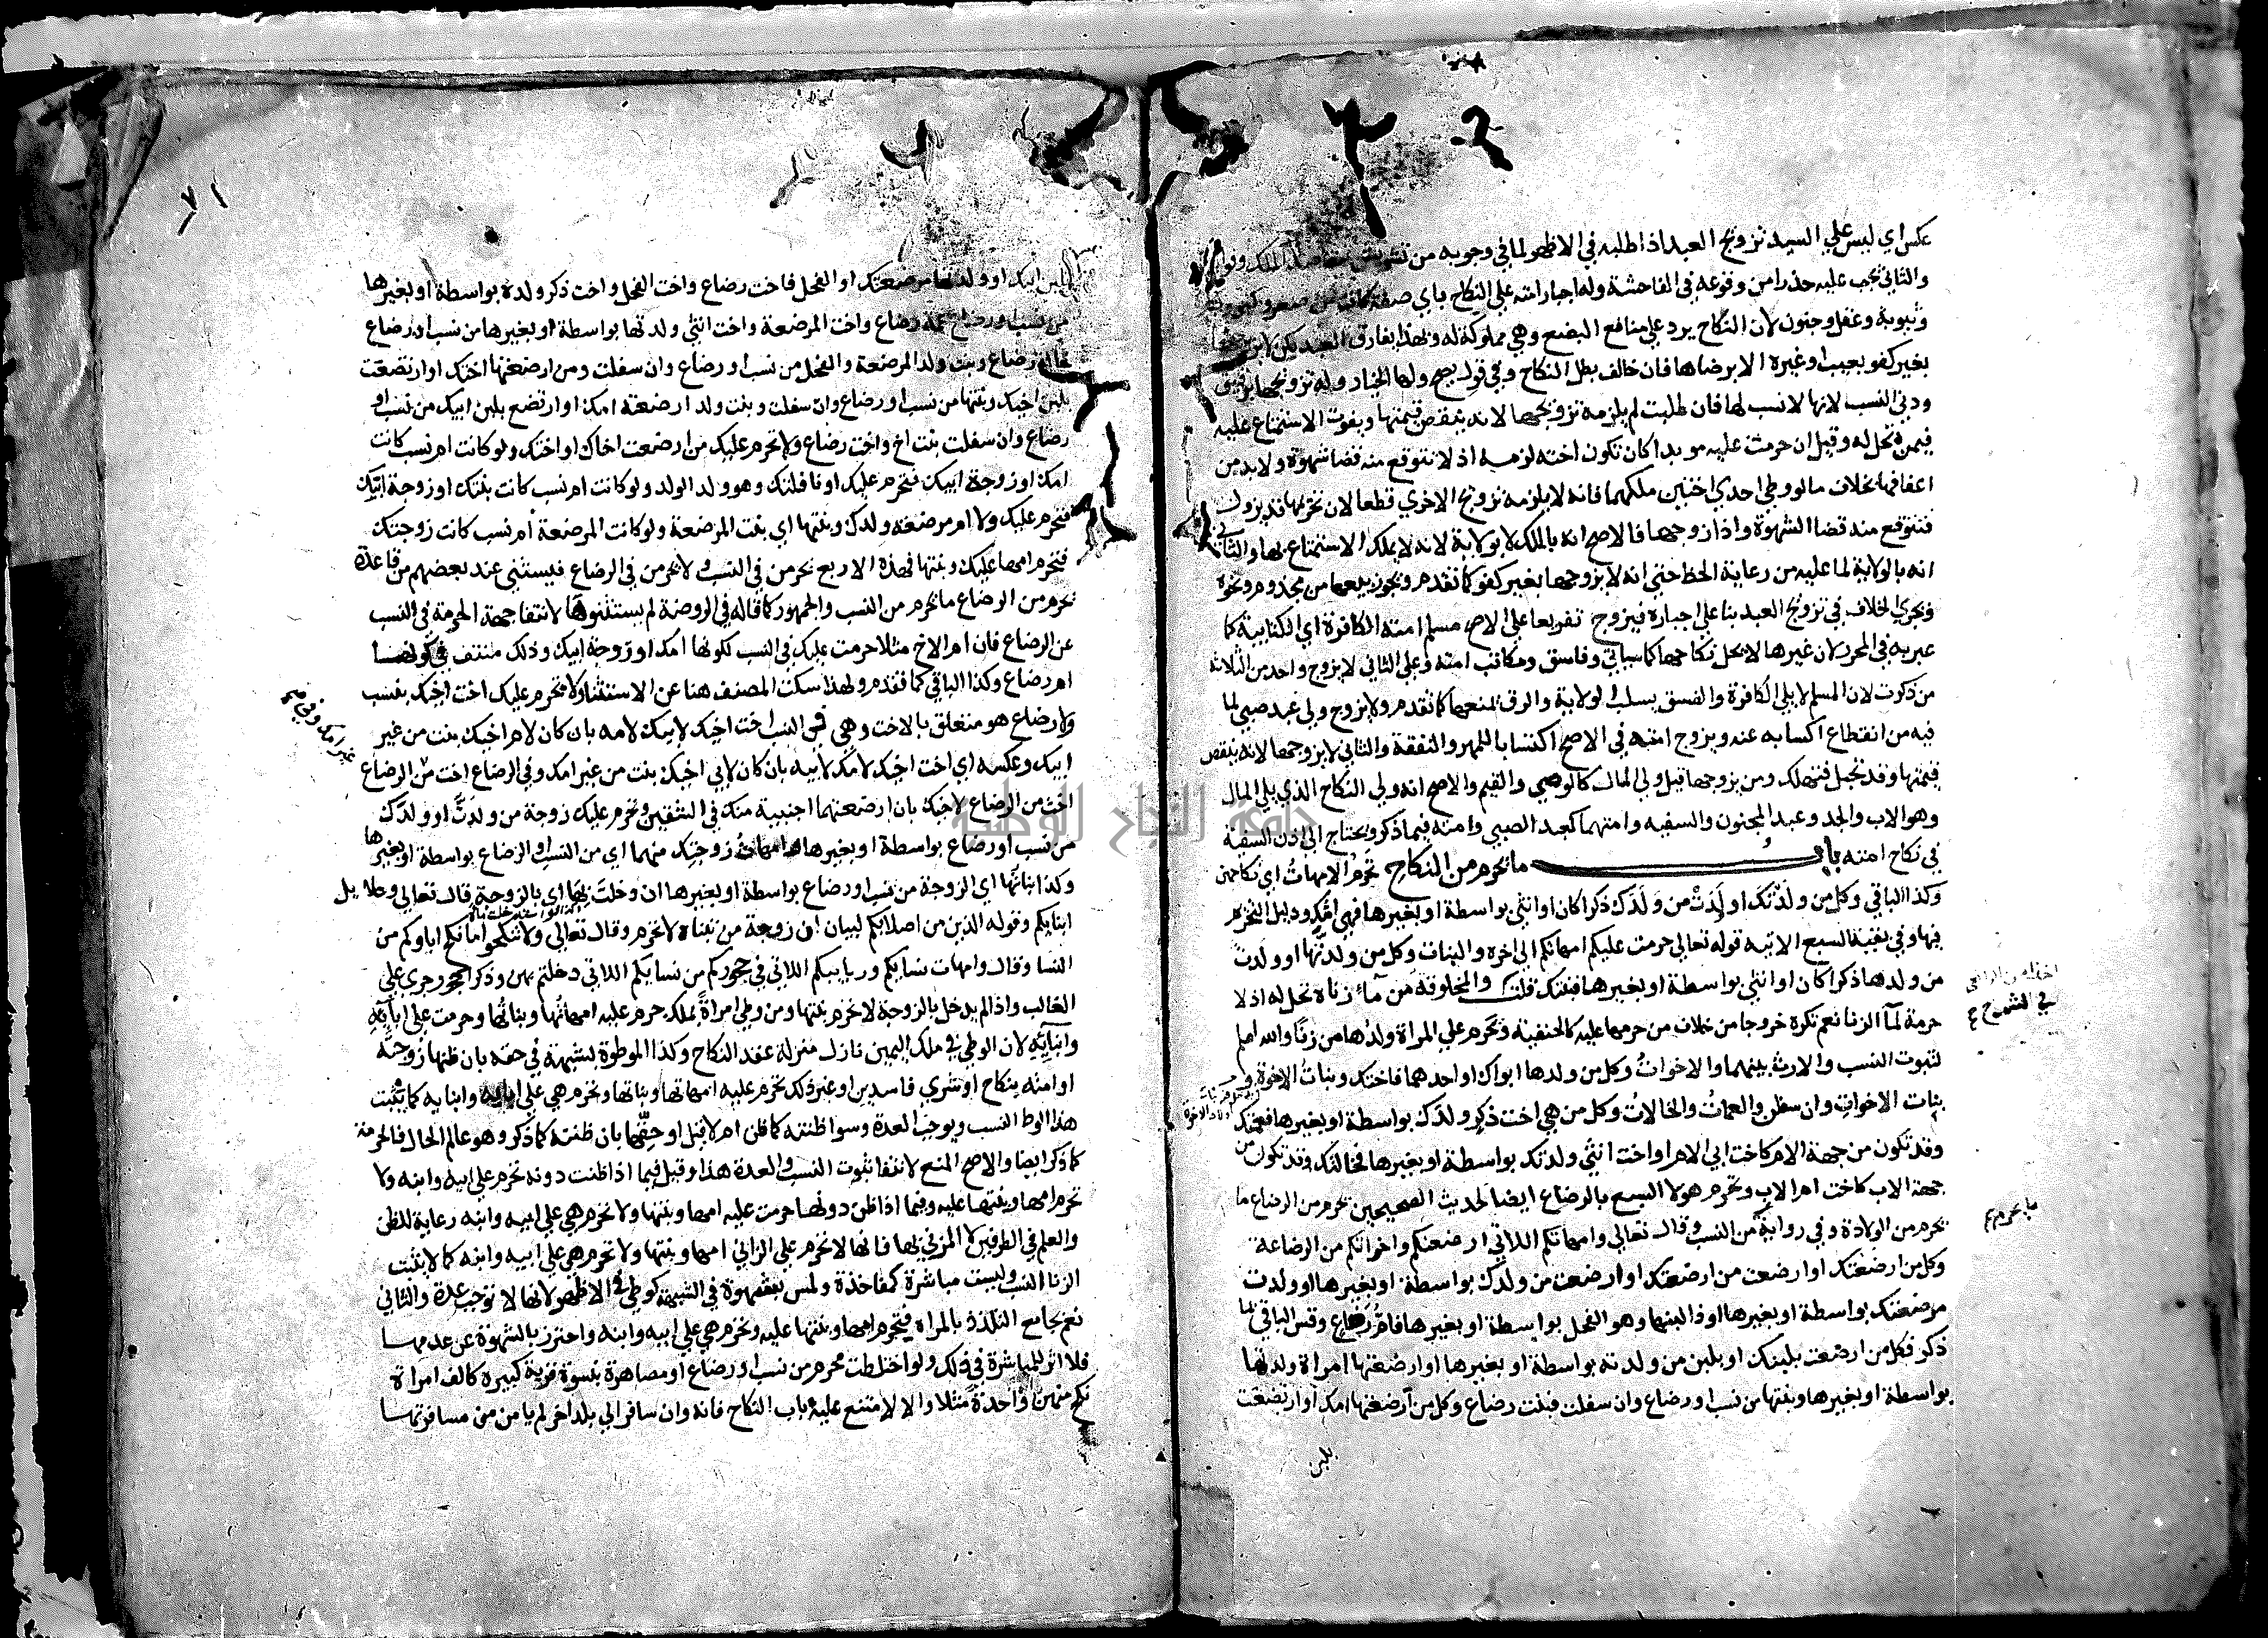 عكس اي ليس علي السيد تزويج العبد اذا طلبه في الاظهر لما في وجوبه من تشويش الملك
والثاني يجب عليه حذرا من وقوعه في الفاحشة وله اجبار امته علي النكاح باي صفة كانت من صغر
وثيوبة وعقل وجنون لان النكاح يرد علي منافع البضع وهي مملوكة له وبهذا يفارق العبد لكن لا يزوجها
بغير كفو بعيب او غيره الا برضاها فان خالف بطل النكاح وفي قول يصح ولها الخيار وله تزويجها برقيق
ودني النسب لانها لا نسب لها فان طلبت لم يلزمه تزويجها لانه ينقص قيمتها ويفوت الاستمتاع عليه
فيمن تحل له وقيل ان حرمت عليه موبدا كان تكون اخته لزمه اذ لا تتوقع منه قضا شهوة ولا بد من
اعفافها بخلاف ما لو وطي احدي اختين ملكهما فانه لا يلزمه تزويج الاخري قطعا لان تحريمها قد يزول
فتتوقع منه قضا الشهوة واذا زوجها فالاصح انه بالملك لا بولاية لانه لا يملك الاستمتاع بها والثاني
انه بالولاية لما عليه من رعاية الحظ حتي انه لا يزوجها بغير كفو كما تقدم ويجوز بيعها من مجذوم ونحوه
ويجري الخلاف في تزويج العبد بنا علي اجباره فيزوج تفريعا علي الاصح مسلم امته الكافرة اي الكتابية كما
عبر به في المحرر لان غيرها لا يحل نكاحها كما سياتي وفاسق ومكاتب امته وعلي الثاني لا يزوج واحد من الثلاثه
من ذكرت لان المسلم لا يلي الكافرة والفسق يسلب الولاية والرق يمنعها كما تقدم ولا يزوج ولي عبد صبي لما
فيه من انقطاع اكسابه عنه ويزوج امته في الاصح اكتسابا للمهر والنفقة والثاني لا يزوجها لانه ينقص
قيمتها وقد تحبل فتهلك ومن يزوجها قيل ولي المال كالوصي والقيم والاصح انه ولي النكاح الذي يلي المال
وهو الاب والجد وعبد المجنون والسفيه وامتهما كعبد الصبي وامته فيما ذكر ويحتاج الي اذن السفيه
في نكاح امته باب ما يحرم من النكاح تحرم الامهات اي نكاحهن
وكذا الباقي وكل من ولدتك او ولدت من ولدك ذكرا كان او انثي بواسطة او بغيرها فهي امك ودليل التحريم
فيها وفي بقية السبع الاتيه قوله تعالي حرمت عليكم امهاتكم الي اخره والبنات وكل من ولدتها او ولدت
من ولدها ذكرا كان او انثي بواسطة او بغيرها فبنتك قلت والمخلوقة من ماء زناه تحل له اذ لا
حرمة لماء الزنا نعم تكره خروجا من خلاف من حرمها عليه كالحنفية وتحرم علي المراة ولدها من زنا والله اعلم
لثبوت النسب والارث بينهما والاخوات وكل من ولدها ابواك او احدهما فاختك وبنات الاخوة و
بنات الاخوات وان سفلن والعمات والخالات وكل من هي اخت ذكر ولدك بواسطة او بغيرها فعمتك
وقد تكون من جهة الام كاخت ابي الام او اخت انثي ولدتك بواسطة او بغيرها فخالتك وقد تكون من
جهة الاب كاخت ام الاب وتحرم هولا السبع بالرضاع ايضا لحديث الصحيحين يحرم من الرضاع ما
يحرم من الولادة وفي رواية من النسب وقال تعالي وامهاتكم اللاتي ارضعنكم واخواتكم من الرضاعة
وكل من ارضعتك او ارضعت من ارضعتك او ارضعت من ولدك بواسطة او بغيرها او ولدت
مرضعتك بواسطة او بغيرها او ذا لبنها وهو الفحل بواسطة او بغيرها فام رضاع وقس الباقي بما
ذكر فكل من ارضعت بلبنك او بلبن من ولدته بواسطة او بغيرها او ارضعتها امراة ولدتها
بواسطة او بغيرها وبنتها من نسب او رضاع وان سفلت فبنت رضاع وكل من ارضعتها امك او ارتضعت
بلبن
في الشروح
ما يحرم
٧١
بلبن ابيك او ولدتها مرضعتك او الفحل فاخت رضاع واخت الفحل واخت ذكر ولده بواسطة او بغيرها
من نسب او رضاع عمة رضاع واخت المرضعة واخت انثي ولدتها بواسطة او بغيرها من نسب او رضاع
خالة رضاع وبنت ولد المرضعة والفحل من نسب او رضاع وان سفلت ومن ارضعتها اختك او ارتضعت
بلبن اخيك وبنتها من نسب او رضاع وان سفلت وبنت ولد ارضعته امك او ارتضع بلبن ابيك من نسب او
رضاع وان سفلت بنت اخ واخت رضاع ولا تحرم عليك من ارضعت اخاك او اختك ولو كانت ام نسب كانت
امك او زوجة ابيك فتحرم عليك او نافلتك وهو ولد الولد ولو كانت ام نسب كانت بنتك او زوجة ابنك
فتحرم عليك ولا ام مرضعة ولدك وبنتها اي بنت المرضعة ولو كانت المرضعة ام نسب كانت زوجتك
فتحرم امها عليك وبنتها فهذه الاربع يحرمن في النسب ولا يحرمن في الرضاع فيستثني عند بعضهم من قاعدة
يحرم من الرضاع ما يحرم من النسب والجمهور كما قاله في الروضة لم يستثنوها لانتفا جهة الحرمة في النسب
عن الرضاع فان ام الاخ مثلا حرمت عليك في النسب لكونها امك او زوجة ابيك وذلك منتف في كونها
ام رضاع وكذا الباقي كما تقدم ولهذا سكت المصنف هنا عن الاستثنا ولا تحرم عليك اخت اخيك بنسب
ولا رضاع هو متعلق بالاخت وهي في النسب اخت اخيك لابيك لامه بان كان لام اخيك بنت من غير
ابيك وعكسه اي اخت اخيك لامك لابيه بان كان لابي اخيك بنت من غير امك وفي الرضاع اخت من الرضاع
اخت من الرضاع لاخيك بان ارضعتهما اجنبية منك في الشقين وتحرم عليك زوجة من ولدت او ولدك
من نسب او رضاع بواسطة او بغيرها وامهات زوجتك منهما اي من النسب والرضاع بواسطة او بغيرها
وكذا بناتها اي الزوجة من نسب او رضاع بواسطة او بغيرها ان دخلت بها اي بالزوجة قال تعالي وحلايل
ابنايكم وقوله الذين من اصلابكم لبيان ان زوجة من تبناه لا تحرم وقال تعالي ولا تنكحوا ما نكح اباوكم من
النسا وقال وامهات نسايكم وربايبكم اللاتي في حجوركم من نسايكم اللاتي دخلتم بهن وذكر الحجور جري علي
الغالب واذا لم يدخل بالزوجة لا تحرم بنتها ومن وطي امراة بملك حرم عليه امهاتها وبناتها وحرمت علي ابايه
وابنايه لان الوطي في ملك اليمين نازل منزلة عقد النكاح وكذا الموطوة بشبهة في حقه بان ظنها زوجته
او امته بنكاح او شري فاسدين او غير ذلك تحرم عليه امهاتها وبناتها وتحرم هي علي ابايه وابنايه كما يثبت
هذا الوط النسب ويوجب العدة وسوا ظنته كما ظن ام لا قيل او حقها بان ظنته كما ذكر وهو عالم الحال فالحرمة
كما ذكر ايضا والاصح المنع لانتفا ثبوت النسب والعدة هذا وقيل فيما اذا ظنت دونه تحرم علي ابيه وابنه ولا
تحرم امها وبنتها عليه وفيما اذا ظن دونها حرمت عليه امها وبنتها ولا تحرم هي علي ابيه وابنه رعاية للظن
والعلم في الطرفين لا المزني بها فانها لا تحرم علي الزاني امها وبنتها ولا تحرم هي علي ابيه وابنه كما لا يثبت
الزنا النسب وليست مباشرة كمفاخذة ولمس بشهوة في الشبهة كوطي في الاظهر لانها لا توجب عدة والثاني
نعم بجامع التلذذ بالمراه فتحرم امها وبنتها عليه وتحرم هي علي ابيه وابنه واحترز بالشهوة عن عدمها
فلا اثر للمباشرة في ذلك ولو اختلطت محرم من نسب او رضاع او مصاهرة بنسوة قرية كبيرة كالف امراة
نكح منهن واحدة مثلا والا لامتنع عليه باب النكاح فانه وان سافر الي بلد اخر لم يامن من مسافرتها
غير امك وفي
جامعة النجاح الوطنية